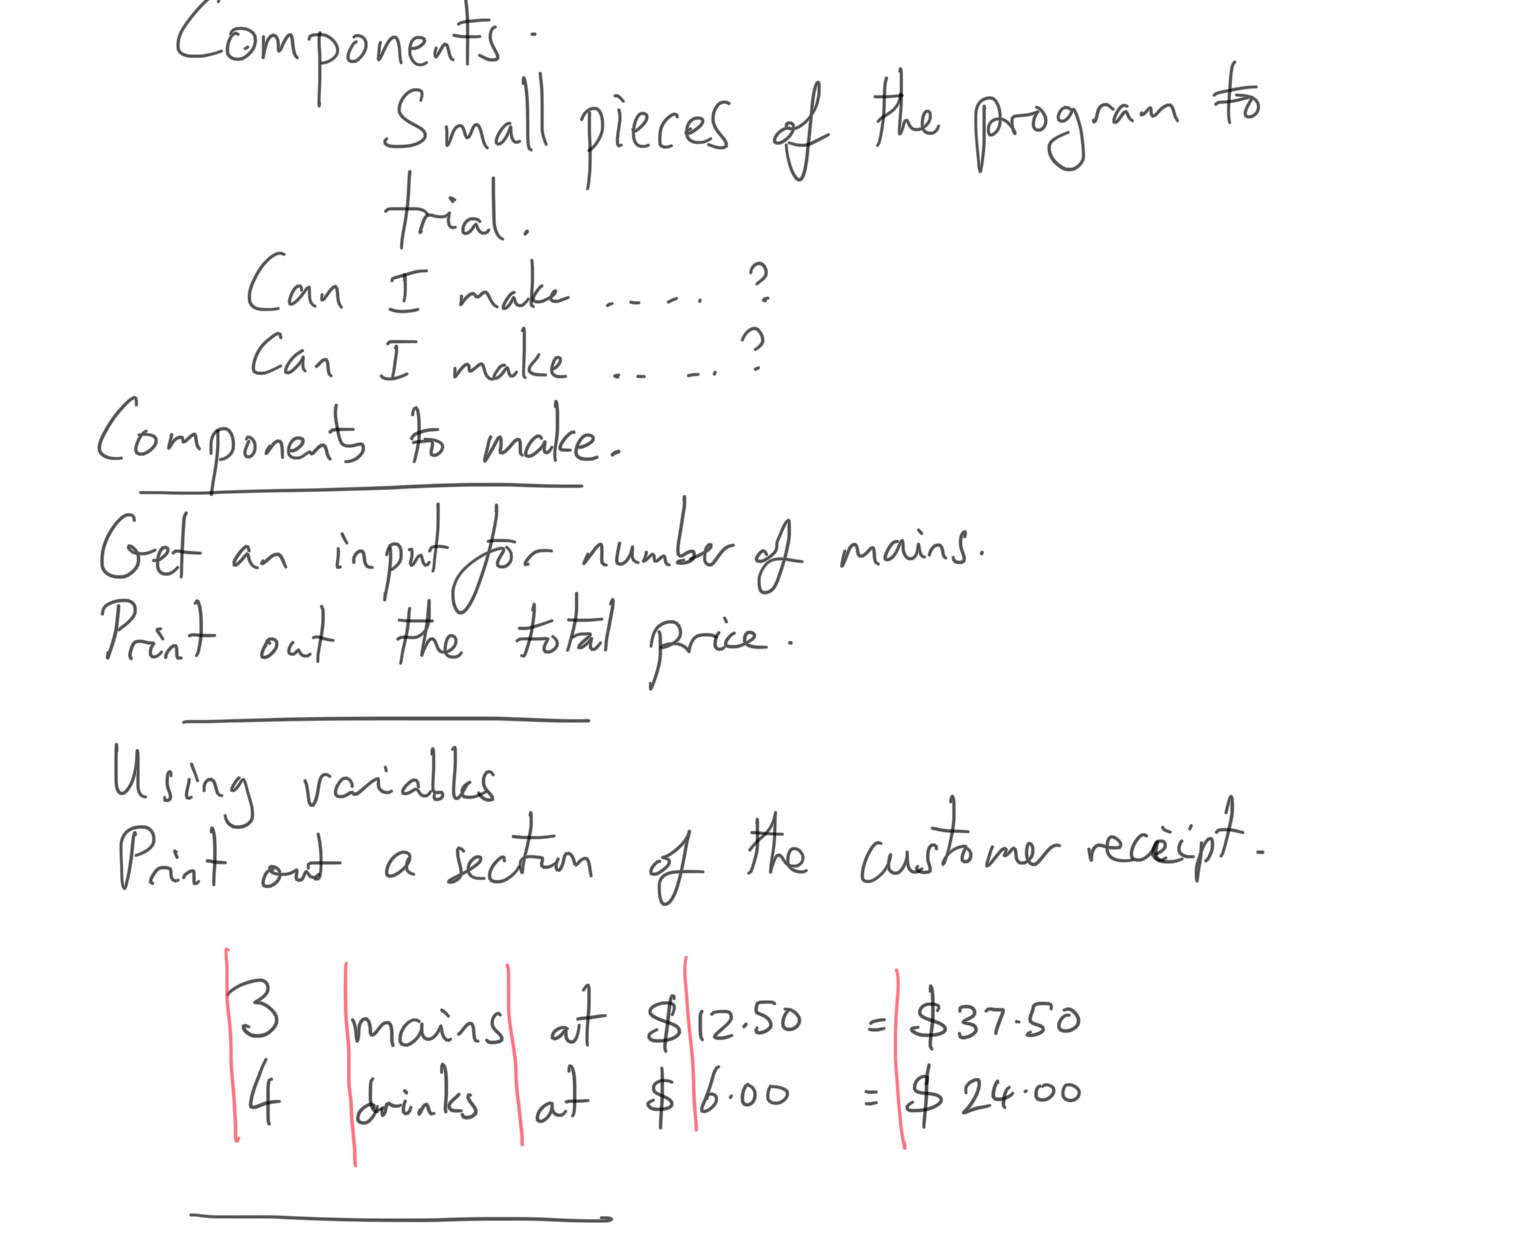 Components.
Small pieces of the program to
trial.
Can I make ..... ?
Can I make .. ...?
Components to make.
Get an input for number of mains.
Print out the total price.
Using variables
Print out a section of the customer receipt.
3 mains at $12.50 = $37.50
4 drinks at $6.00 = $24.00